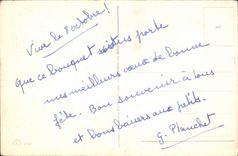 Vive le 8 octobre !
que ce bouquet vous porte
mes meilleurs vœux de bonne
fête. Bon souvenir à tous
et bons baisers aux petits.
G. Planchet